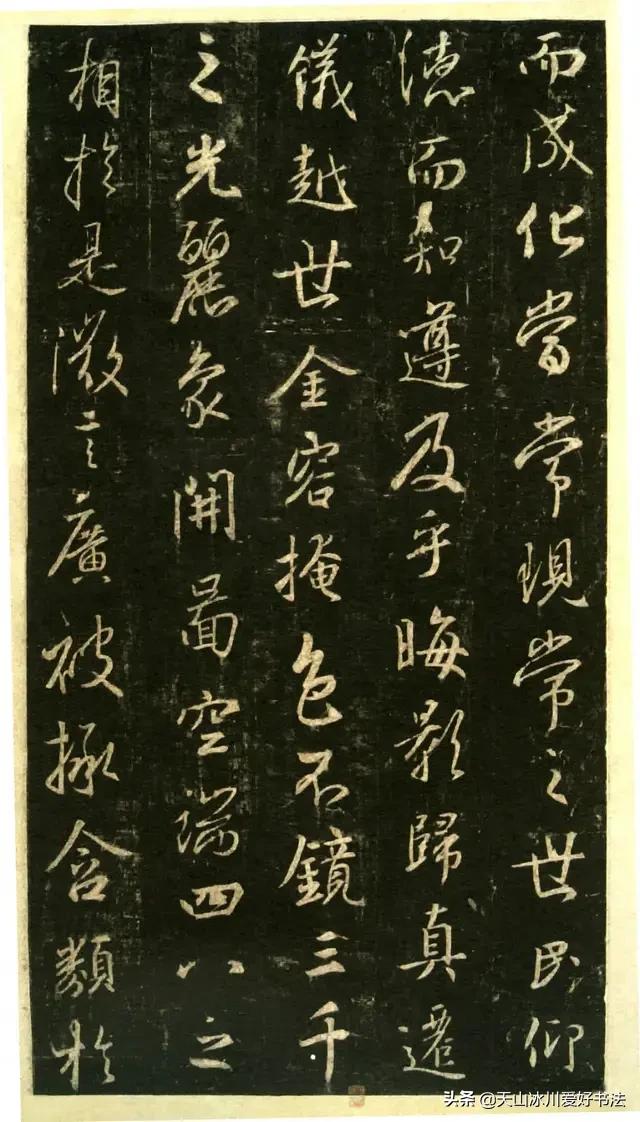 而成化當常現常之世民仰
德而知遵及乎晦影歸真遷
儀越世金容掩色不鏡三千
之光麗象開圖空端四八之
相於是微言廣被拯含類於
头条 @天山冰川爱好书法